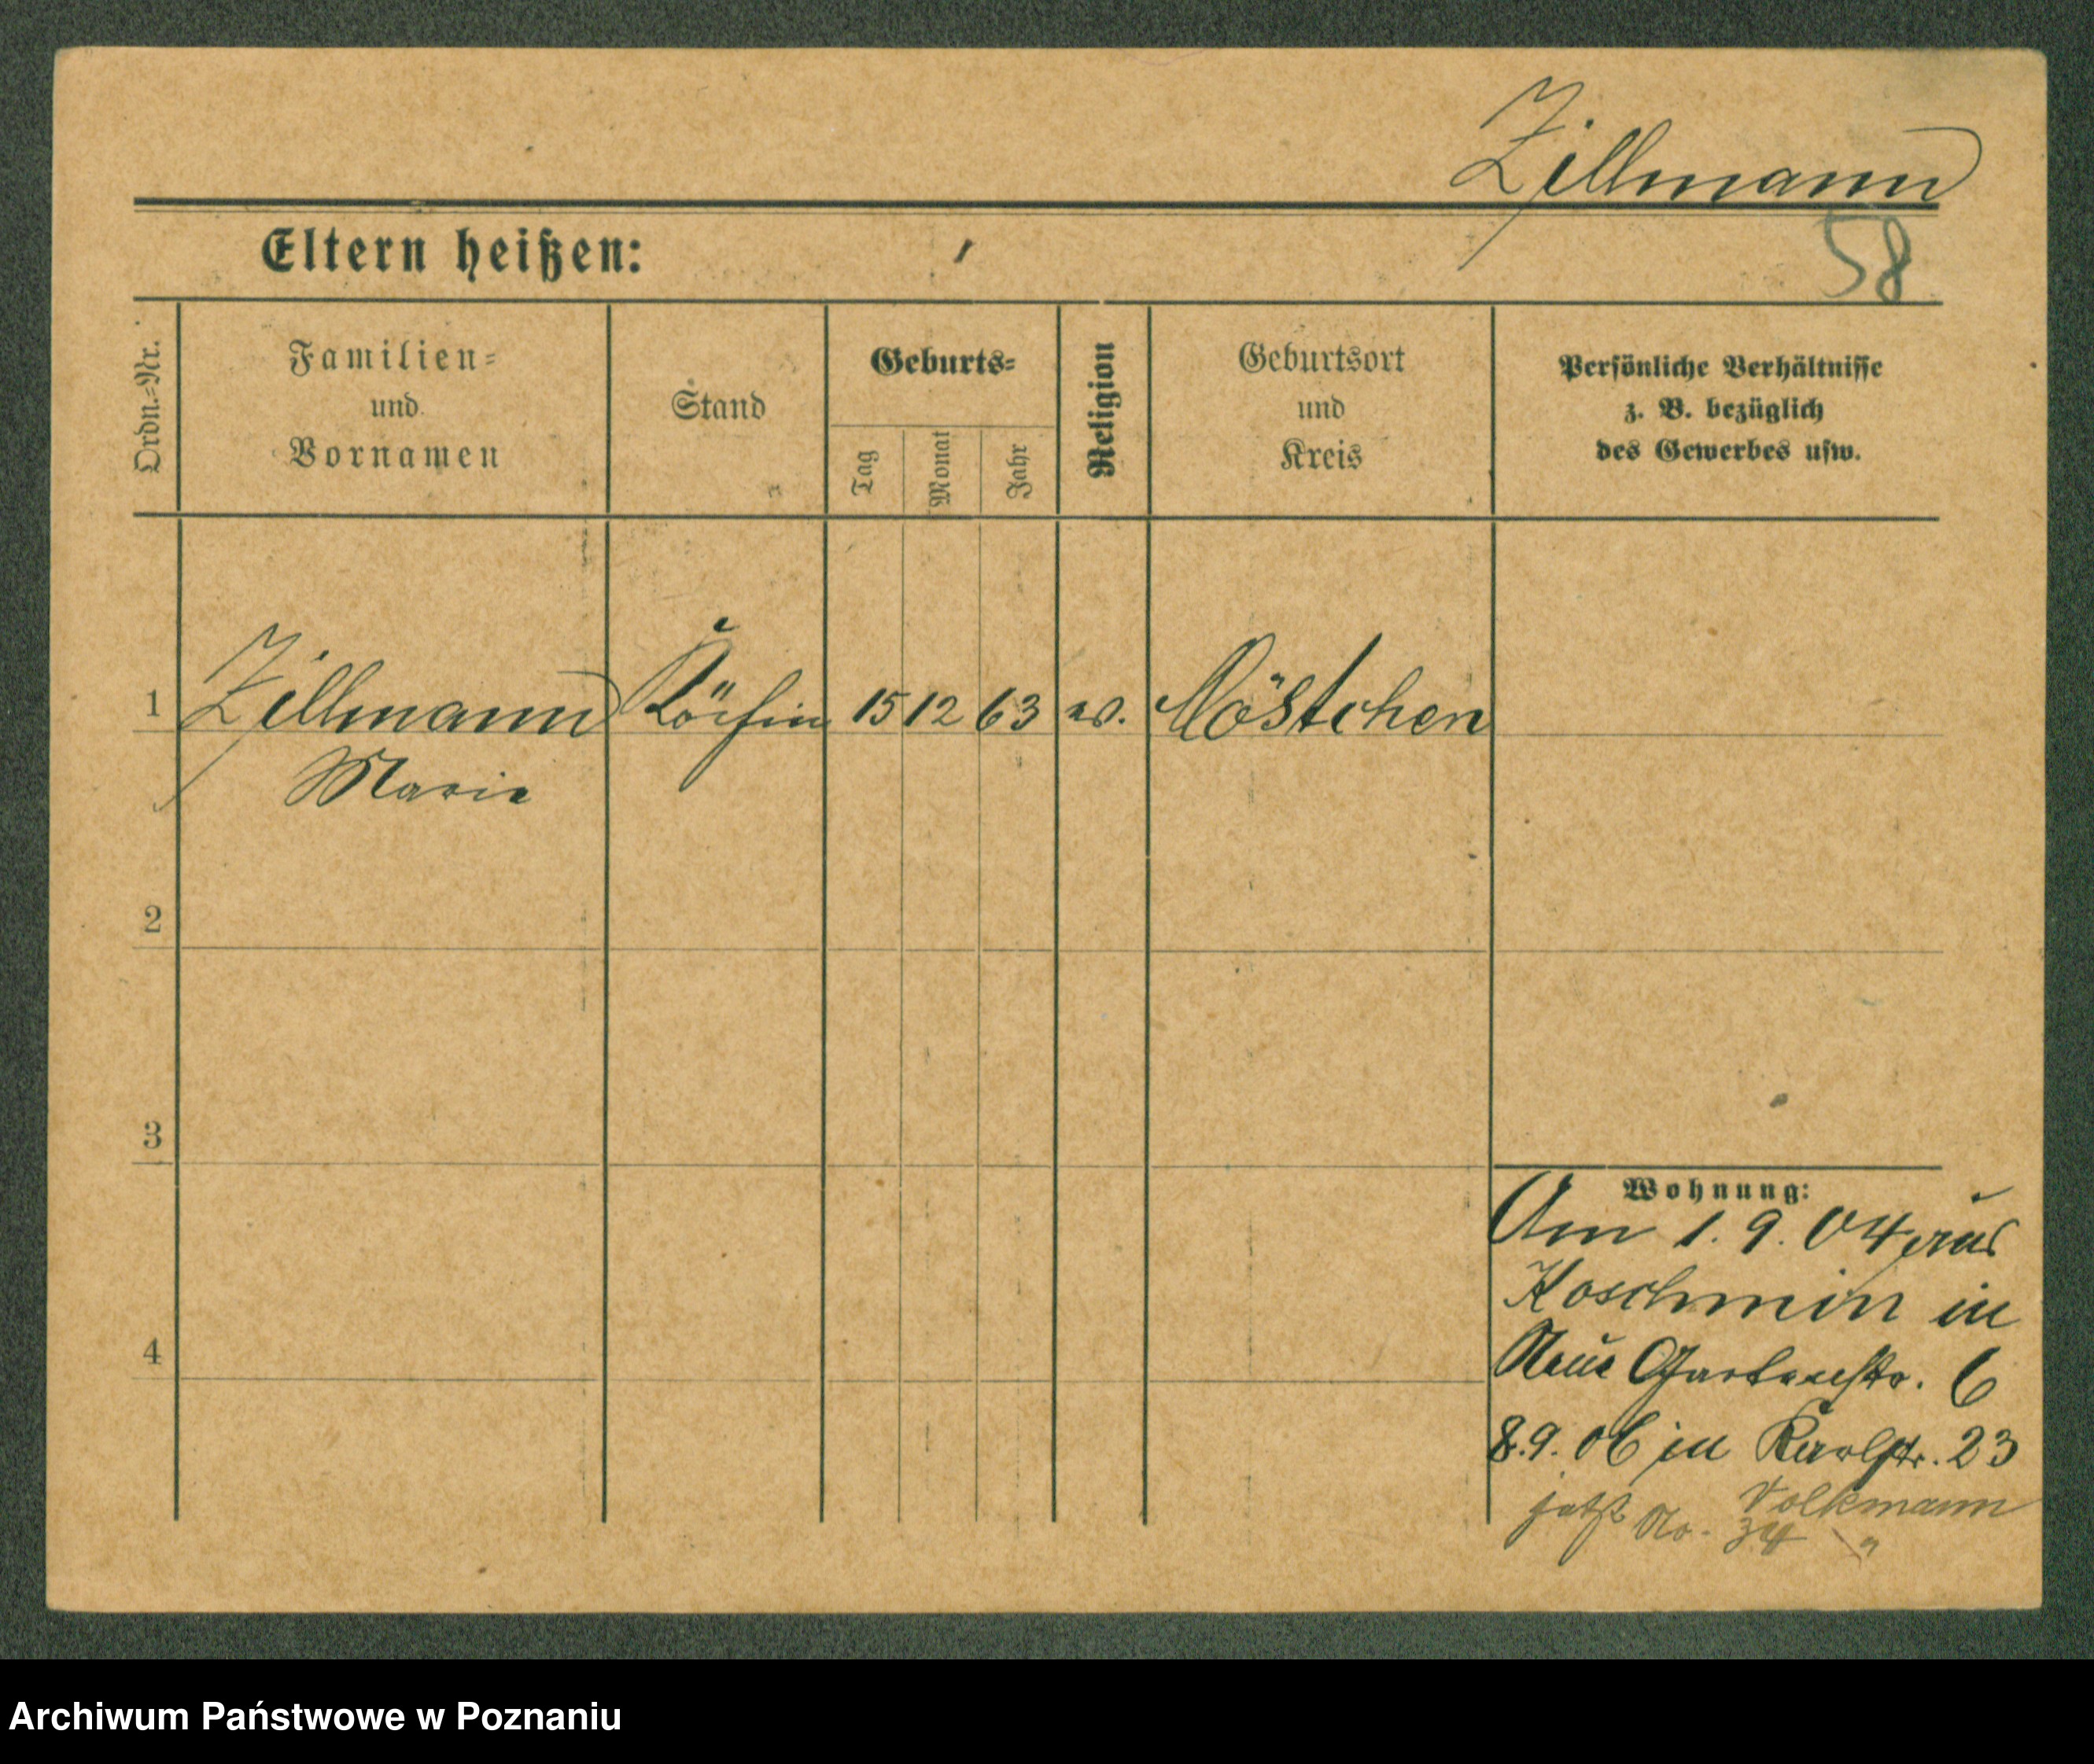 Zillmann
58
Eltern heißen:
Ordn.=Nr.
Familien=
und
Vornamen
Stand
Geburts=
Tag
Monat
Jahr
Religion
Geburtsort
und
Kreis
Persönliche Verhältnisse
z. B. bezüglich
des Gewerbes usw.
1 Zillmann Köchin 15 12 63 ev. Möstchen
Marie
2
3
4
Wohnung:
Am 1. 9. 04 aus
Koschmin in
Neue Gartenstr. 6
8. 9. 06 in Karlstr. 23
Volkmann
jetzt No. 34 "
Archiwum Państwowe w Poznaniu